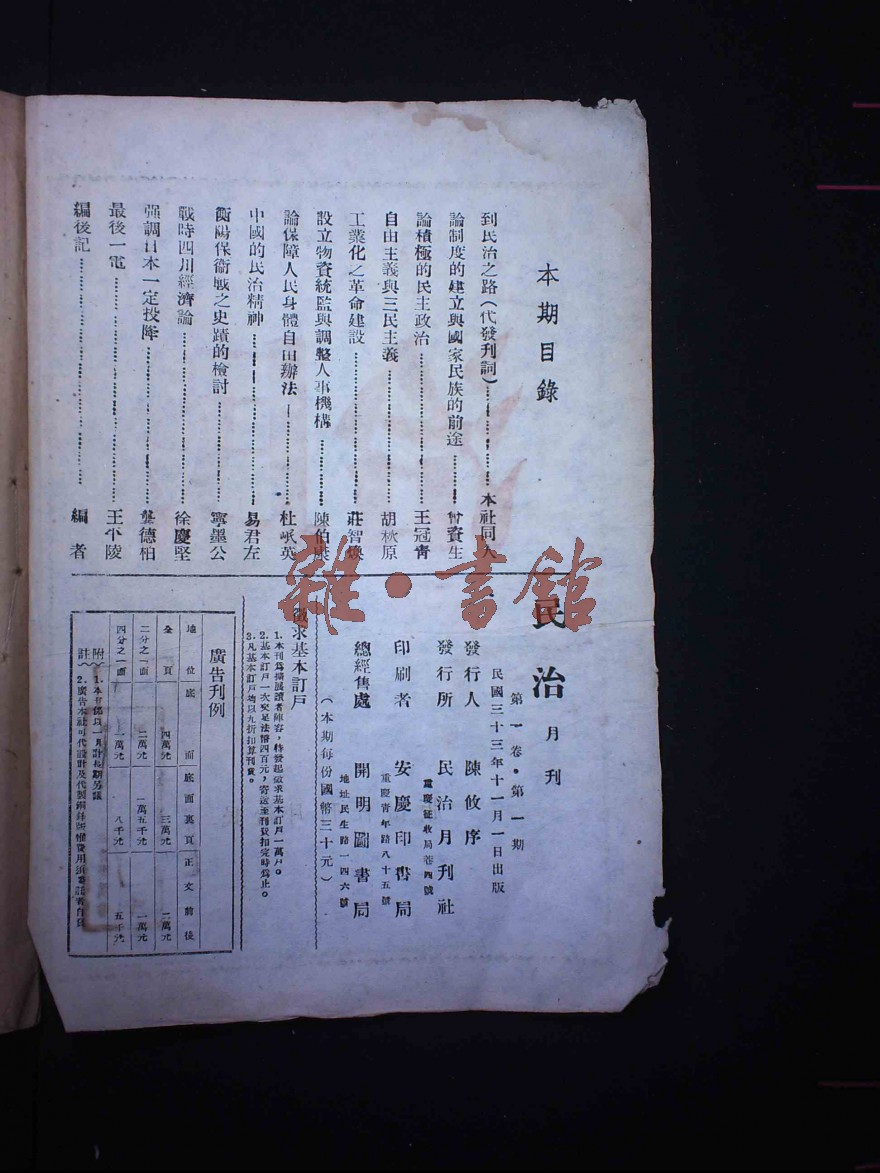 本期目錄
到民治之路（代發刊詞）……本社同人
論制度的建立與國家民族的前途……曾資生
論積極的民主政治……王冠青
自由主義與三民主義……胡秋原
工業化之革命建設……莊智煥
設立物資統監與調整人事機構……陳伯康
論保障人民身體自由辦法……杜岷英
中國的民治精神……易君左
衡陽保衛戰之史蹟的檢討……寧墨公
戰時四川經濟論……徐慶堅
强調日本一定投降……龔德柏
最後一電……王平陵
編後記……編者
民治月刊
第一卷・第一期
民國三十三年十一月一日出版
發行人 陳攸序
發行所 民治月刊社
重慶征收局巷四號
印刷者 安慶印書局
重慶青年路八十五號
總經售處 開明圖書局
地址民生路一四六號
（本期每份國幣三十元）
徵求基本訂戶
1.本刊爲擴展讀者陣容，特發起徵求基本訂戶一萬戶。
2.基本訂戶一次交足法幣四百元，寄送至刊費扣完時爲止。
3.凡基本訂戶均以九折扣算刊費。
廣告刊例
地位 底面 底面裏頁 正文前後
全頁 四萬元 三萬元 二萬元
二分之一面 二萬元 一萬五千元 一萬元
四分之一面 一萬元 八千元 五千元
附註
1.本右係以一月計長期另議
2.廣告本社可代設計及代製銅鋅版惟費用須
雜・書館